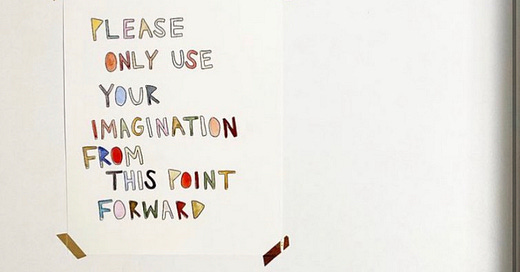 PLEASE
ONLY USE
YOUR
IMAGINATION
FROM
THIS POINT
FORWARD